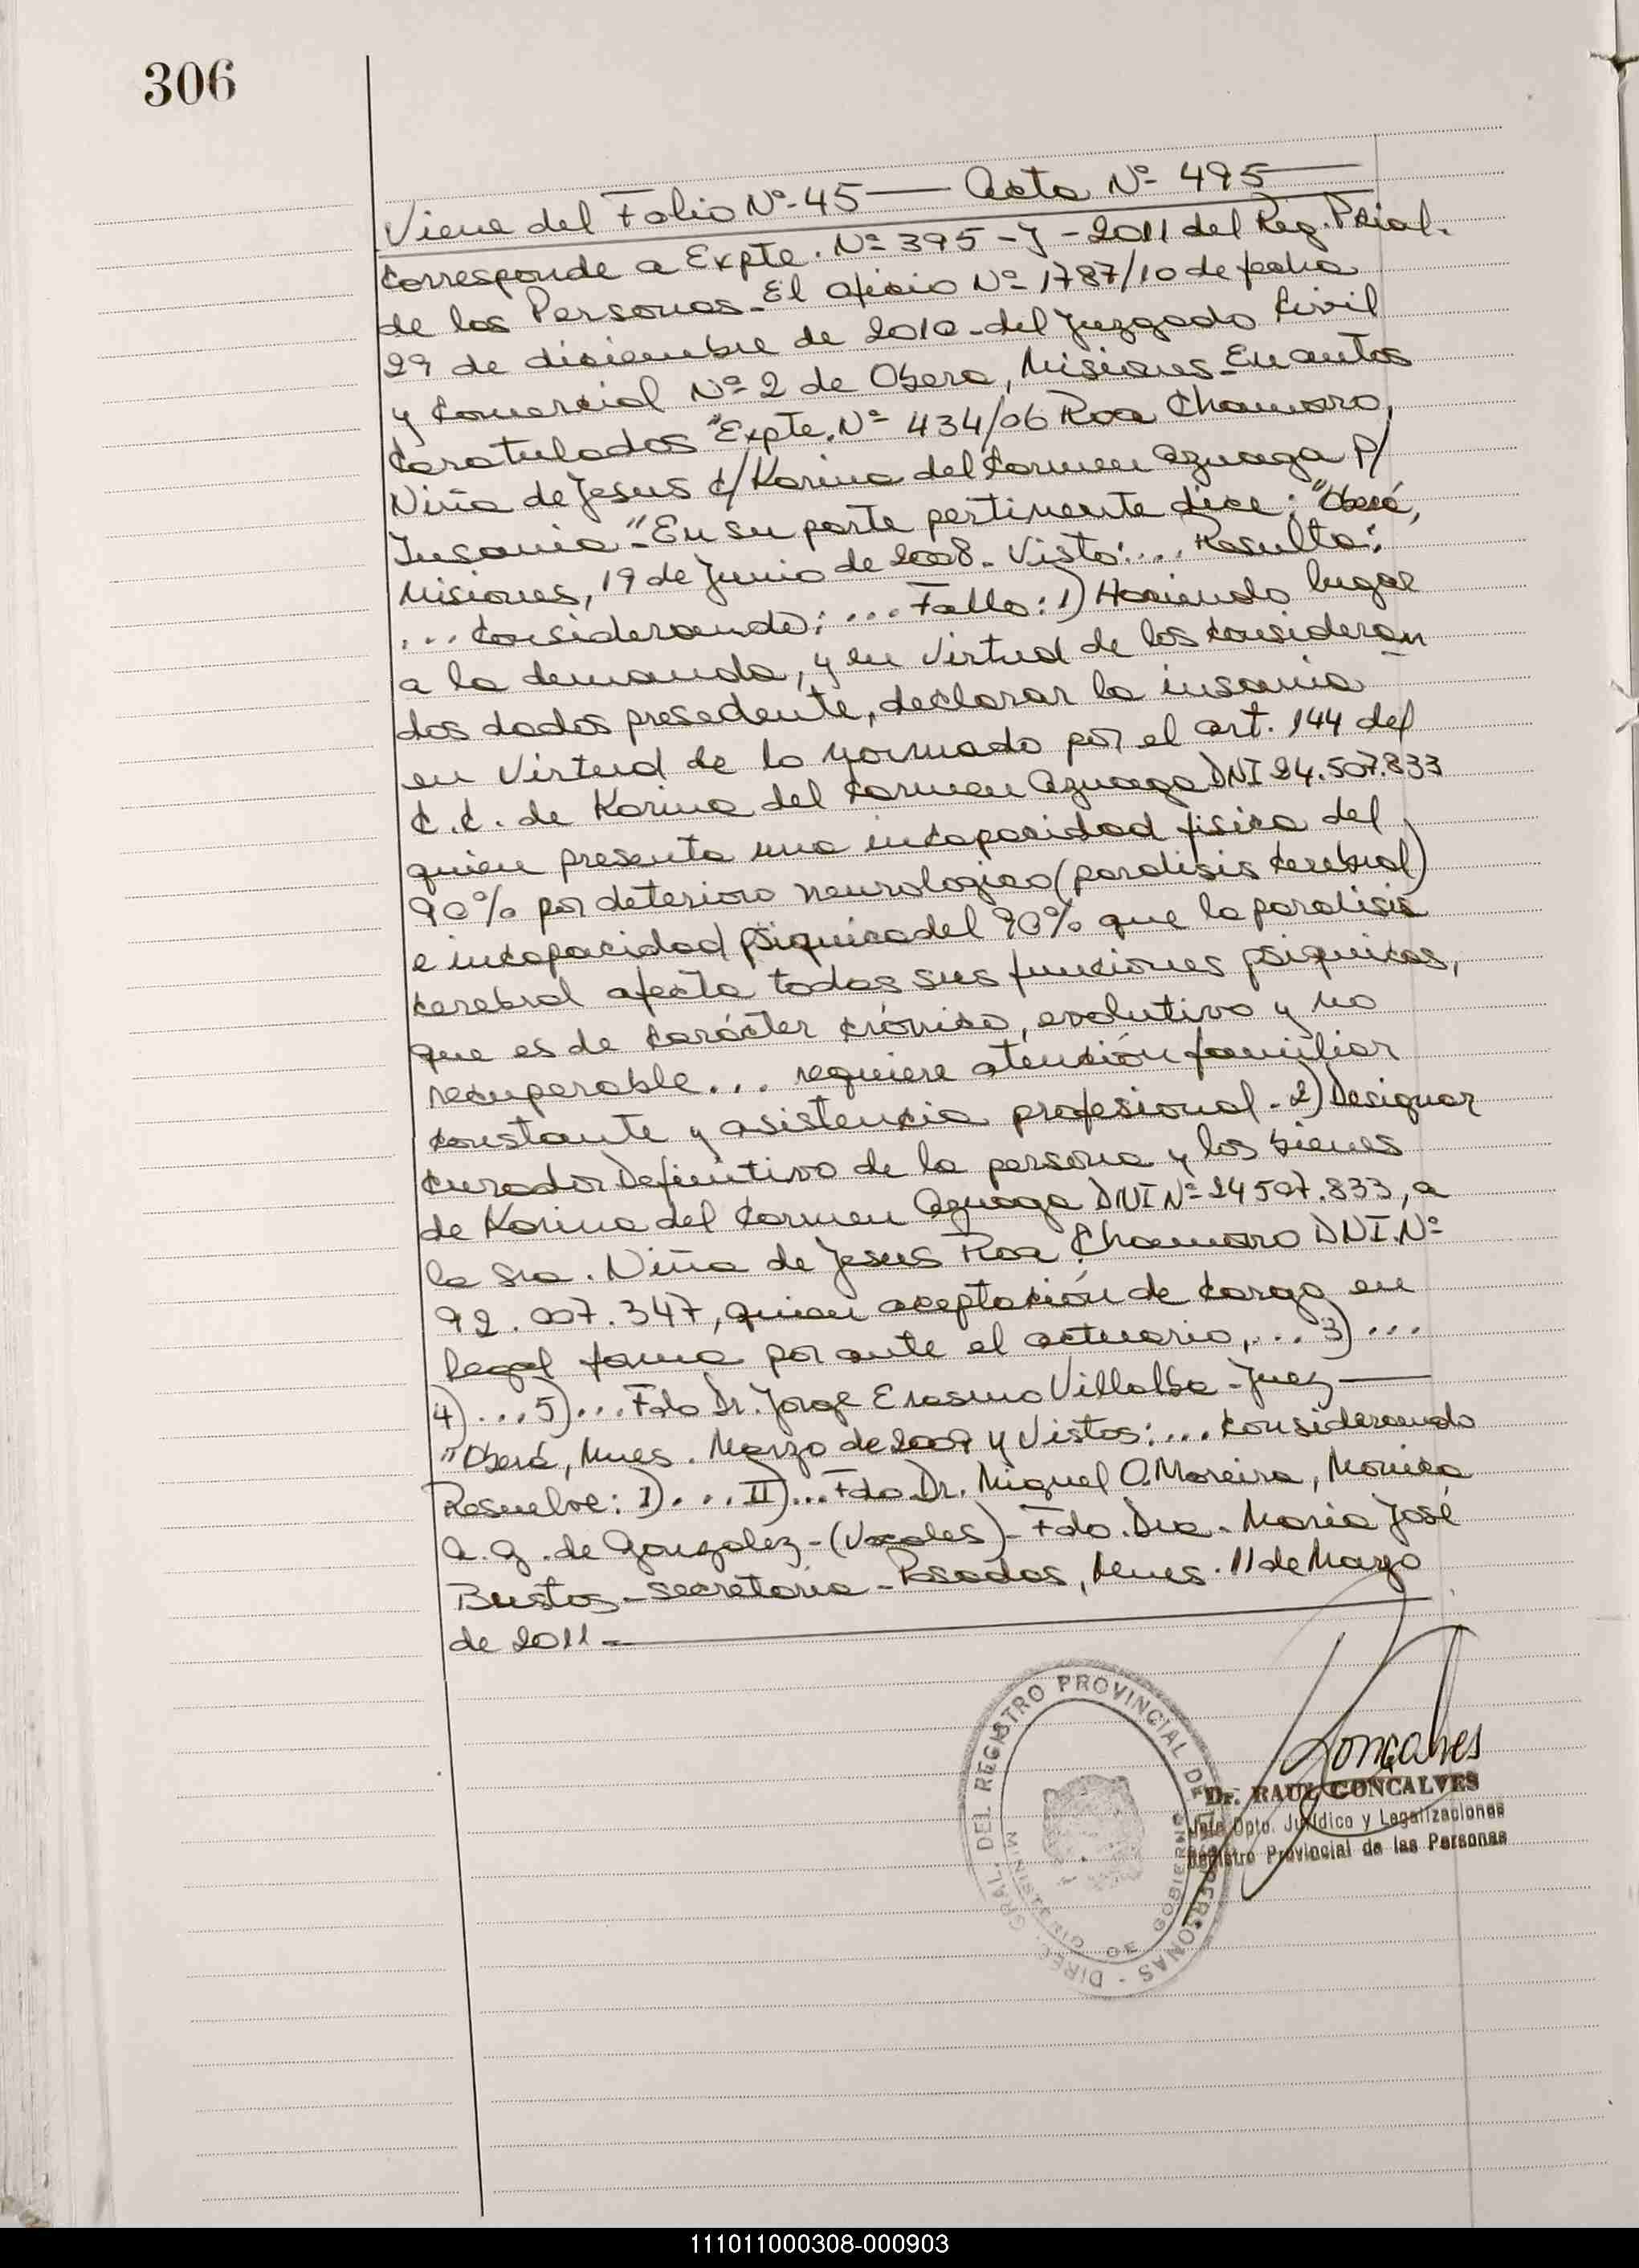 306
Viene del Folio Nº 45 — Acta Nº 495 —
Corresponde a Expte. Nº 395-J-2011 del Reg. Pcial.
de las Personas - El oficio Nº 1787/10 de fecha
29 de diciembre de 2010 - del Juzgado Civil
y Comercial Nº 2 de Obera, Misiones - En autos
Caratulados "Expte. Nº 434/06 Roa Chamoro,
Niña de Jesus c/ Karina del Carmen Azuaga P/
Insania" - En su parte pertinente dice: "Oberá,
Misiones, 19 de Junio de 2008. Visto: ... Resulta:
... Considerando: ... Fallo: 1) Haciendo lugar
a la demanda, y en virtud de los consideran
dos dados presedente, declarar la insania
en virtud de lo normado por el art. 144 del
C.C. de Karina del Carmen Azuaga DNI 24.507.833
quien presenta una incapacidad fisica del
90% por deterioro neurologico (paralisis cerebral)
e incapacidad psiquica del 90% que la paralisis
cerebral afecta todas sus funciones psiquicas,
que es de carácter crónico, evolutivo y no
recuperable... requiere atención familiar
constante y asistencia profesional - 2) Designar
Curador Definitivo de la persona y los bienes
de Karina del Carmen Azuaga DNI Nº 24507.833, a
la Sra. Niña de Jesus Roa Chamoro DNI. Nº
92.007.347, quien aceptación de cargo en
legal forma por ante el actuario, ... 3) ...
4) ... 5) ... Fdo Dr. Jorge Erasmo Villalba - Juez —
"Oberá, Mnes. Marzo de 2009 y Vistos: ... Considerando
Resuelve: I) ... II) ... Fdo. Dr. Miguel O. Moreira, Monica
A. G. de Gonzalez - (Vocales) - Fdo. Dra. Maria José
Bustos - secretaria - Posadas, Mnes. 11 de Marzo
de 2011 -
DIREC. GRAL. DEL REGISTRO PROVINCIAL DE LAS PERSONAS
MINISTERIO DE GOBIERNO
Goncalves
Dr. RAUL GONCALVES
Jefe Dpto. Jurídico y Legalizaciones
Registro Provincial de las Personas
111011000308-000903